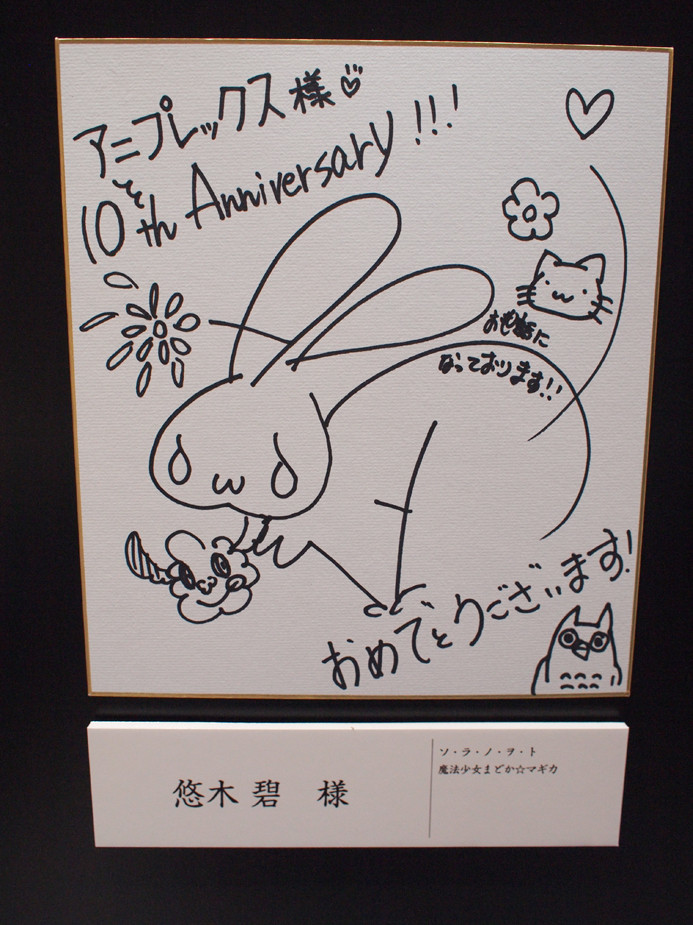 アニプレックス様
10th Anniversary!!!
お世話に
なっております!!
おめでとうございます!
悠木 碧 様
ソ・ラ・ノ・ヲ・ト
魔法少女まどか☆マギカ